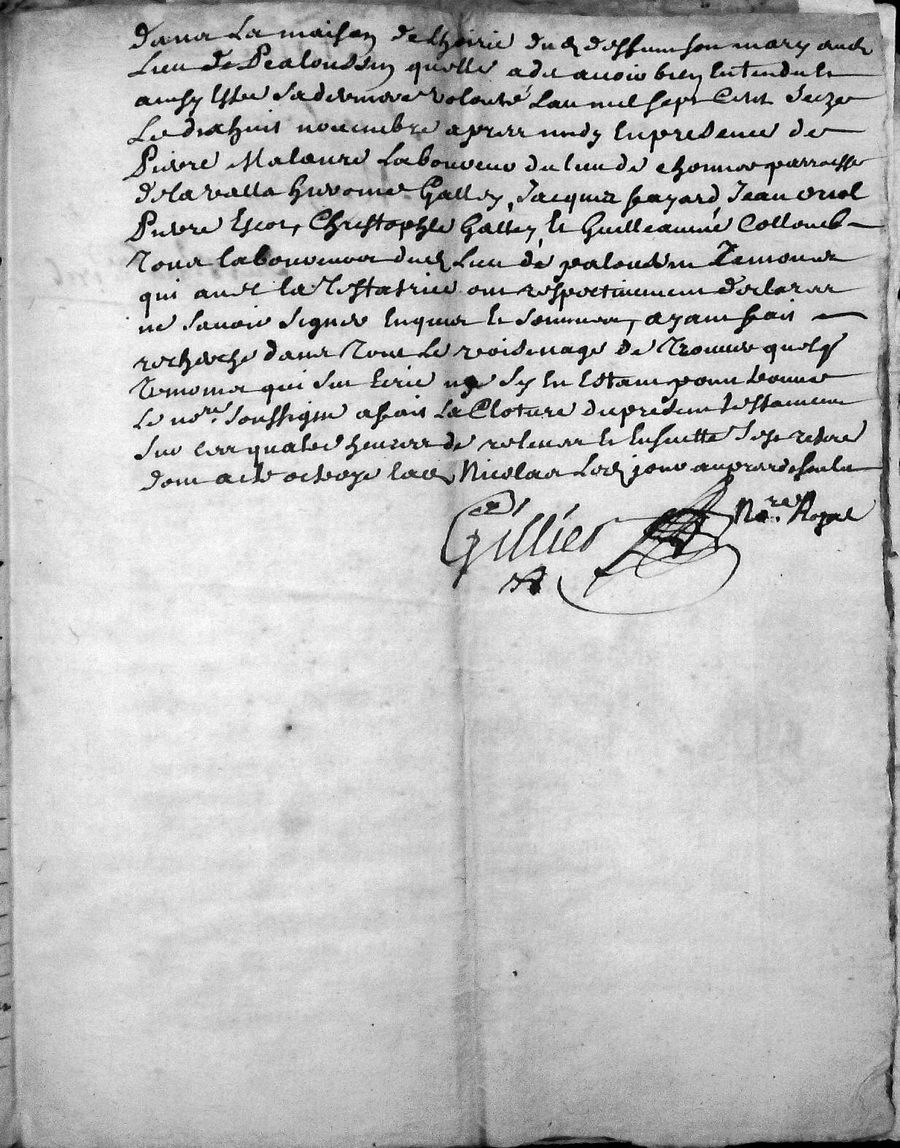 dans La maison de Lhoirie dud deffunt son mary aud
Lieu de Pealoussin quelle a dit avoir bien Entendu et
ainsy Estre sa derniere volonté Lan mil sept Cent seize
Le dixhuit novembre apres midy En presence de
Pierre Malaure Laboureur du lieu de parroisse
de lavalla Galley, Jacques fayard, Jean oriol
Pierre Escot, Christophle Galley, et Guilleaume Collomb
Tous laboureurs dud Lieu de pealoussin Temoins
qui avec la Testatrice ont respectivement declarer
ne savoir signer Enquis et sommes, ayant fait
recherche dans Tout Le voisinage de Trouver quelq
Temoins qui sut Ecrire ne sy En Estant point trouvé
Le nore soussigné a fait La Cloture du present testament
sur Les quatre heures de relever et Ensuitte
dont acte octroye lad Nicolas Led jour
Gillier Nore. Royal